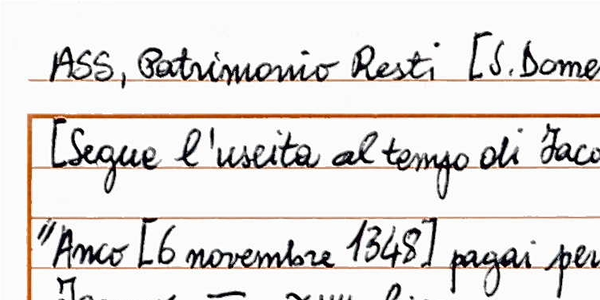 ASS, Patrimonio Resti [S. Dome
[Segue l'uscita al tempo di Jaco
"Anco [6 novembre 1348] pagai per